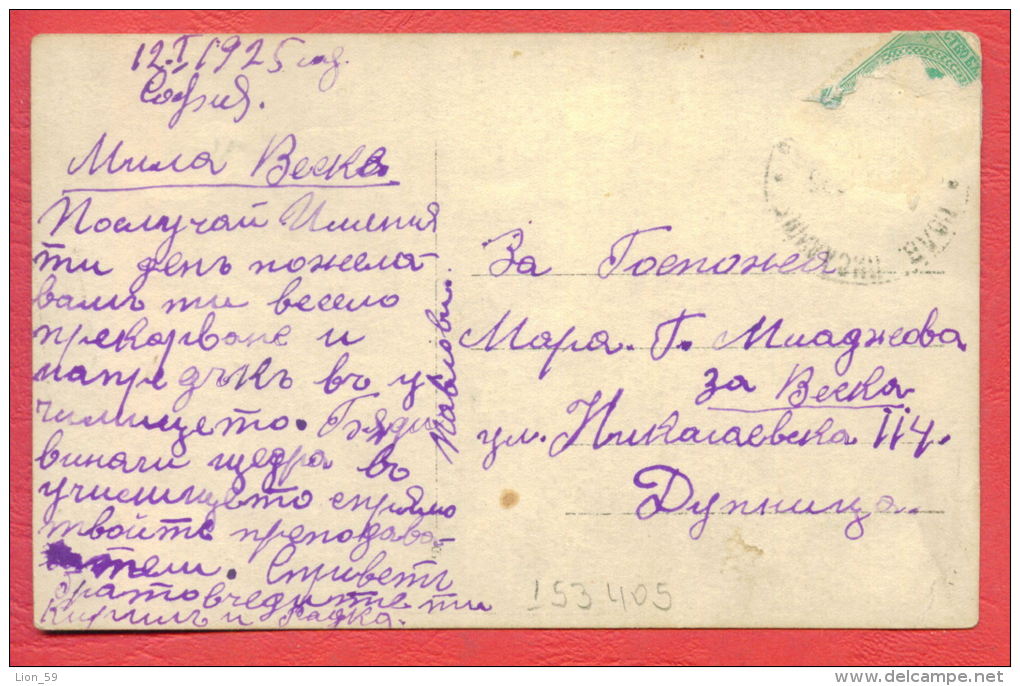 12.I 1925 год.
София.
Мила Веска
Послучай Имения
ти день пожела-
вамъ ти весело
прекарване и
напредъкъ въ у-
чилището. Бѫди
винаги щедра въ
училището спрямо
твойте преподава-
тели. Съ приветъ
братовчедите ти
Кирилъ и Радка.
Павлови.
За Госпожа
Мара. Г. Миаджова
за Веска
ул. Николаевска II ч.
Дупница.
153405
Lion_59
delcampe.net